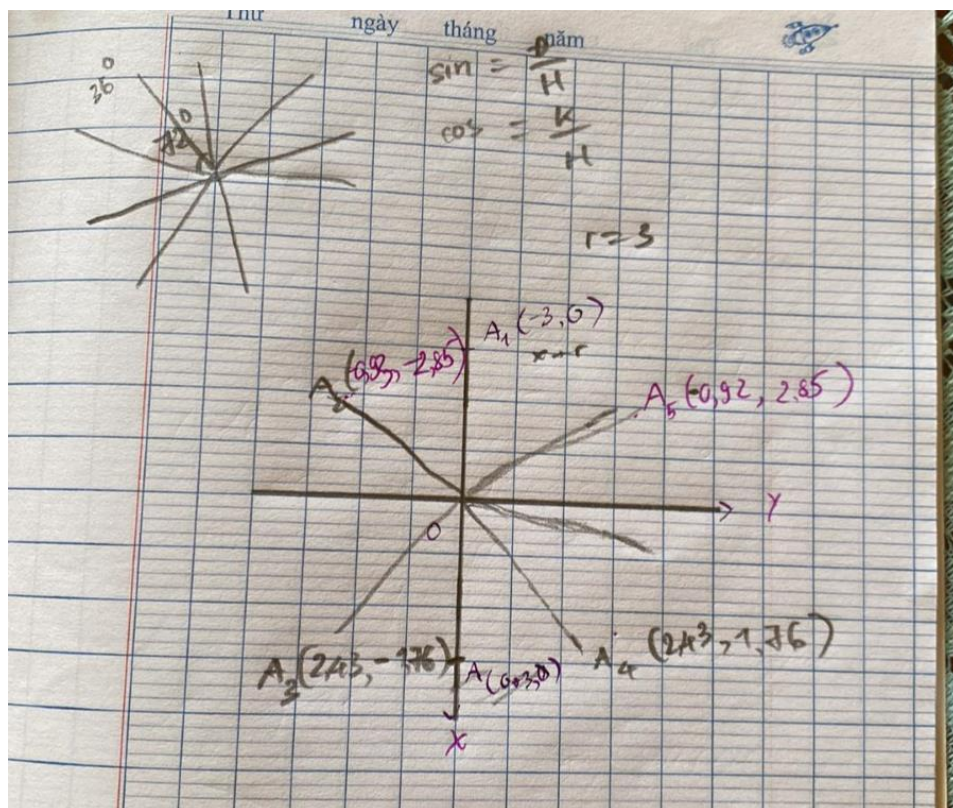 Thứ ngày tháng năm
sin = Đ/H
cos = K/H
36°
72°
r = 3
A₁(-3,0)
x - r
A₂(-0,92, -2,85)
A₅(-0,92, 2,85)
Y
O
A₃(2,43, -1,76)
A₄(2,43, 1,76)
X